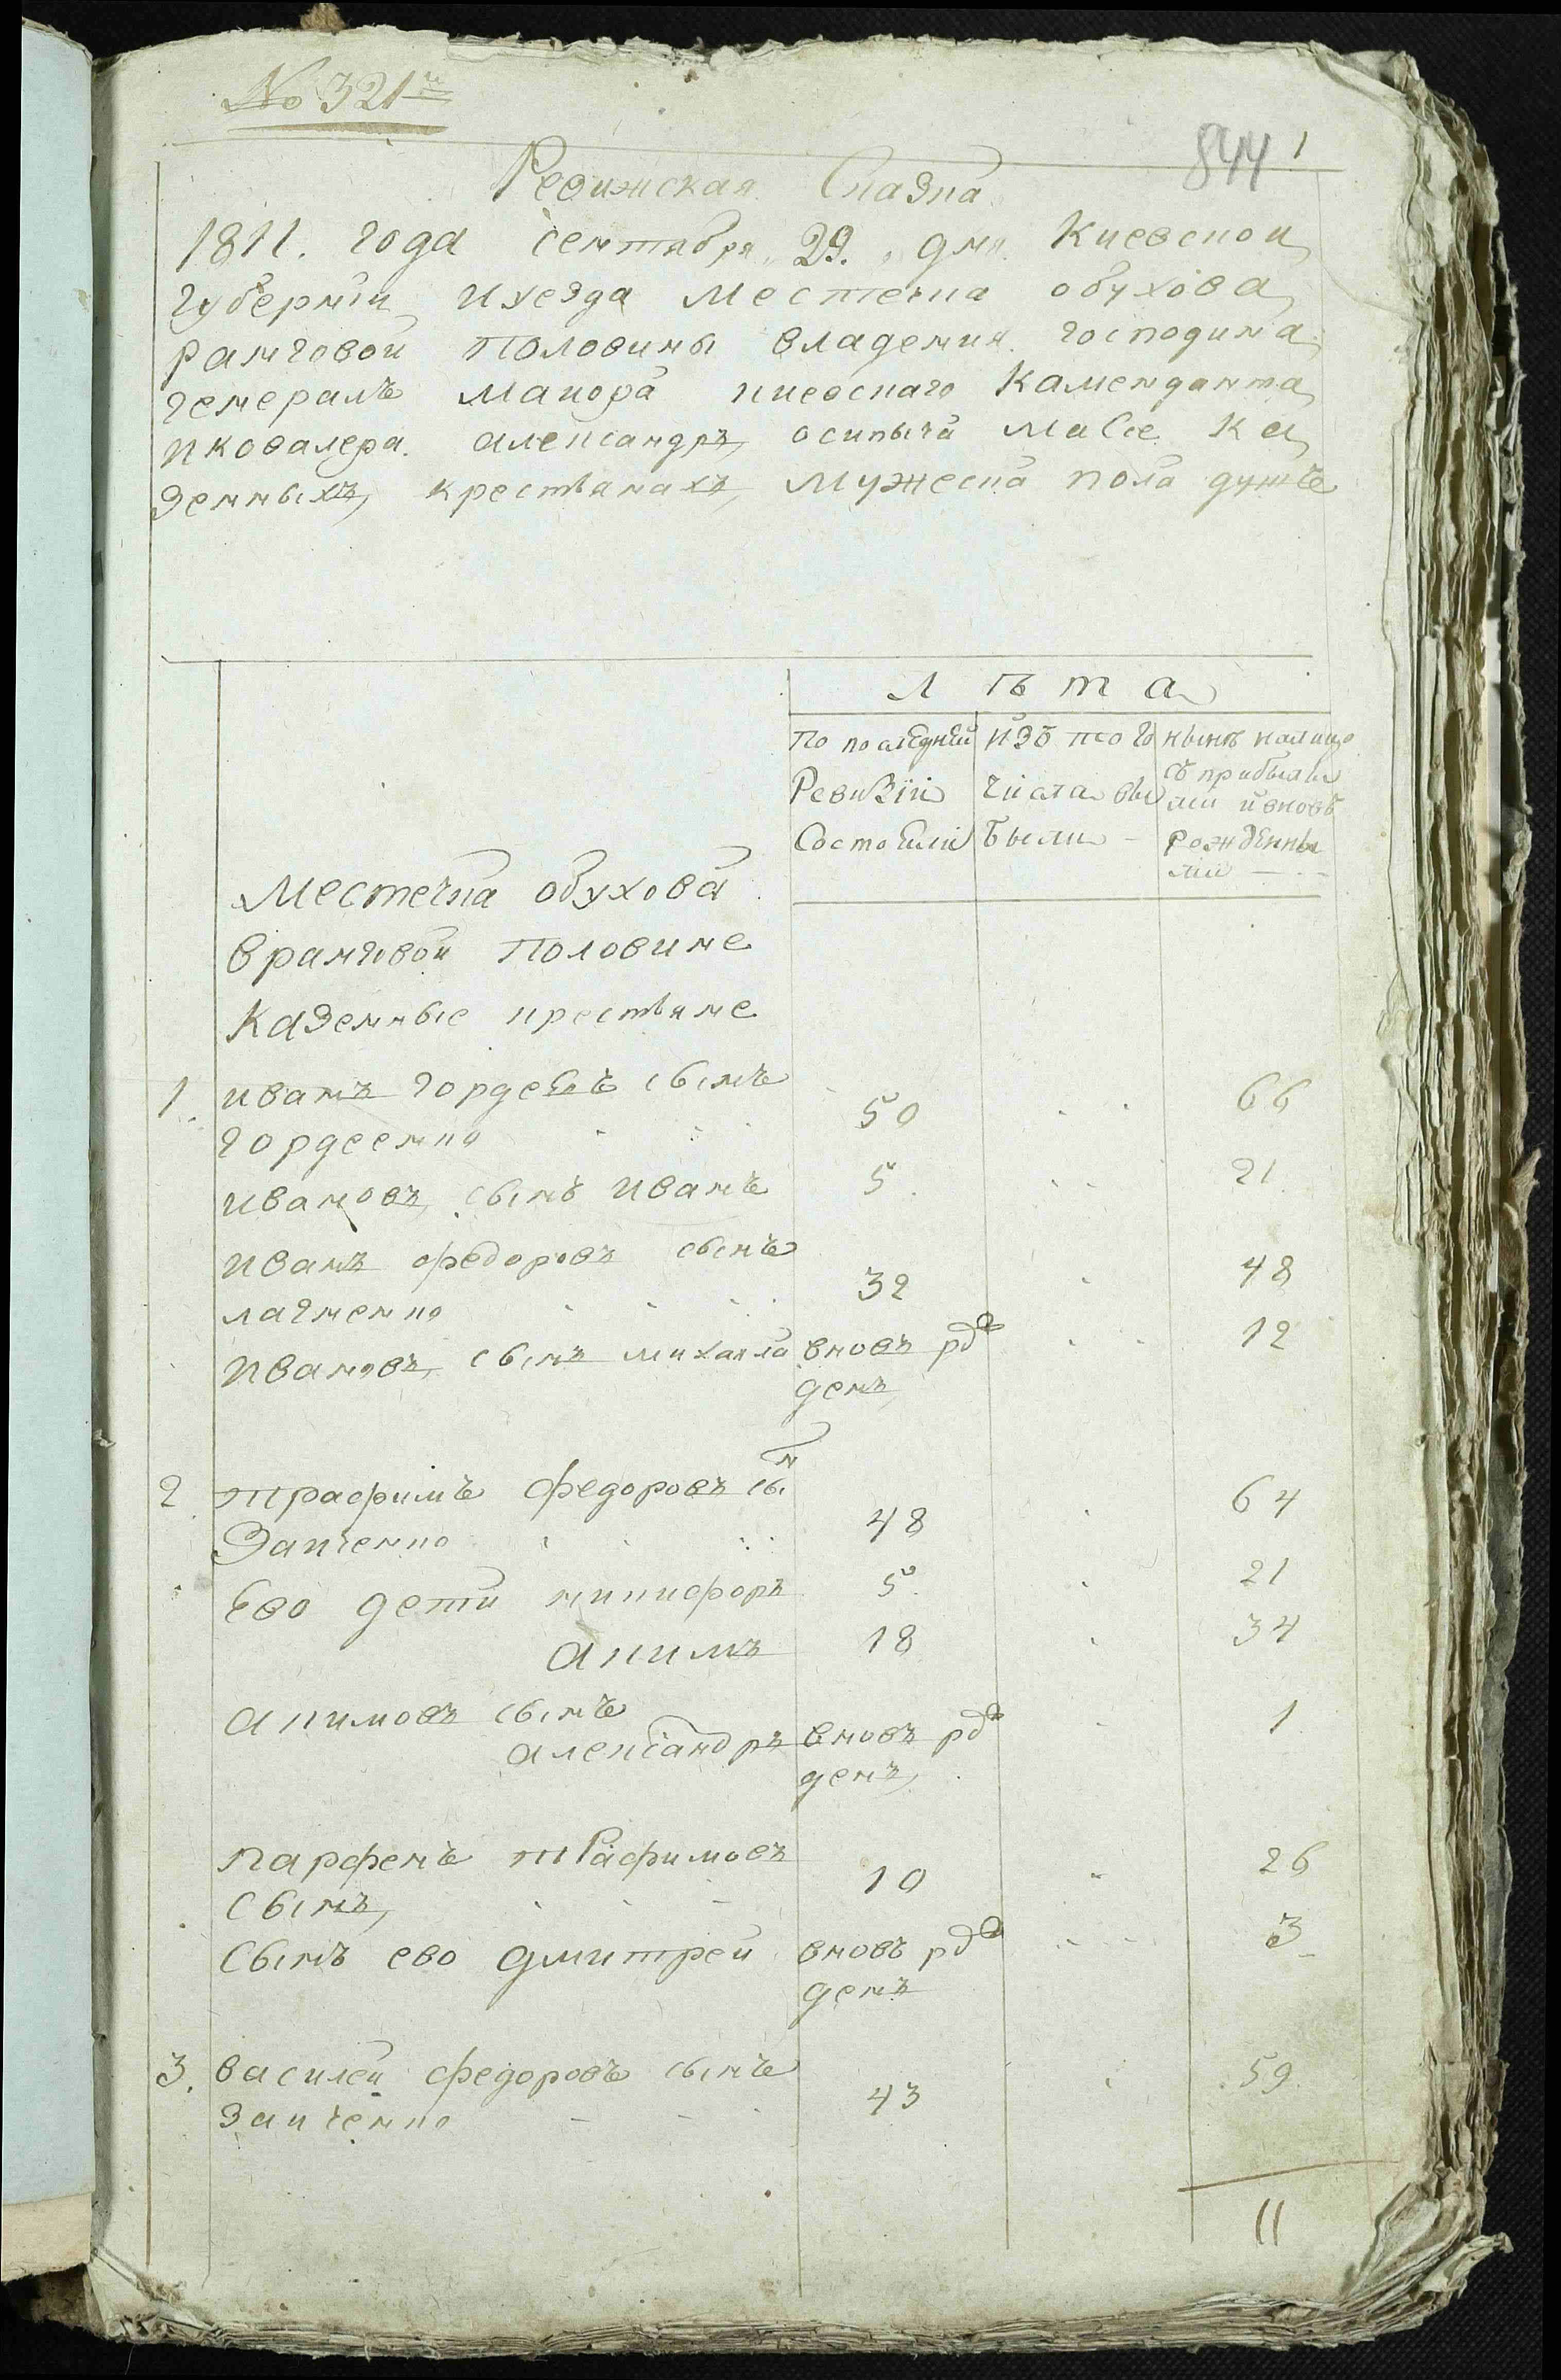 № 321й
844 1
Ревижская Сказка
1811. года сентября „29.„ дня Киевской
губернии иуезда Местечка обухова
рамговой половины владения господина
генералъ маиора киевскаго Каменданта
иковалера. александръ осипыча Массе Ка
зенныхъ, крестьянахъ, мужеска пола душъ
Л Ѣ т а
По последней изъ того нынѣ налицо
Ревизіи числа вы съ прибылы
ми ивновь
Состояли были – рожденны
ми – – –
Местечка обухова
врамговой половине
Казенные крестьяне
1. иванъ гордеевъ сынъ
гордеенко 50 66
ивановъ, сынъ иванъ 5. 21.
иванъ федоровъ сынъ
лагненко 32 48
ивановъ, сынъ михаила вновъ ро 12
денъ,
2 трафимъ федоровъ сын
Заиченко 48 64
Ево дети никифоръ 5. 21
акимъ 18 34
акимовъ сынъ
александръ вновъ ро 1
денъ,
парфенъ трафимовъ
сынъ, 10 26
сынъ ево дмитрей вновъ ро 3
денъ
3. василей федоровъ сынъ
заиченко 43 59.
11